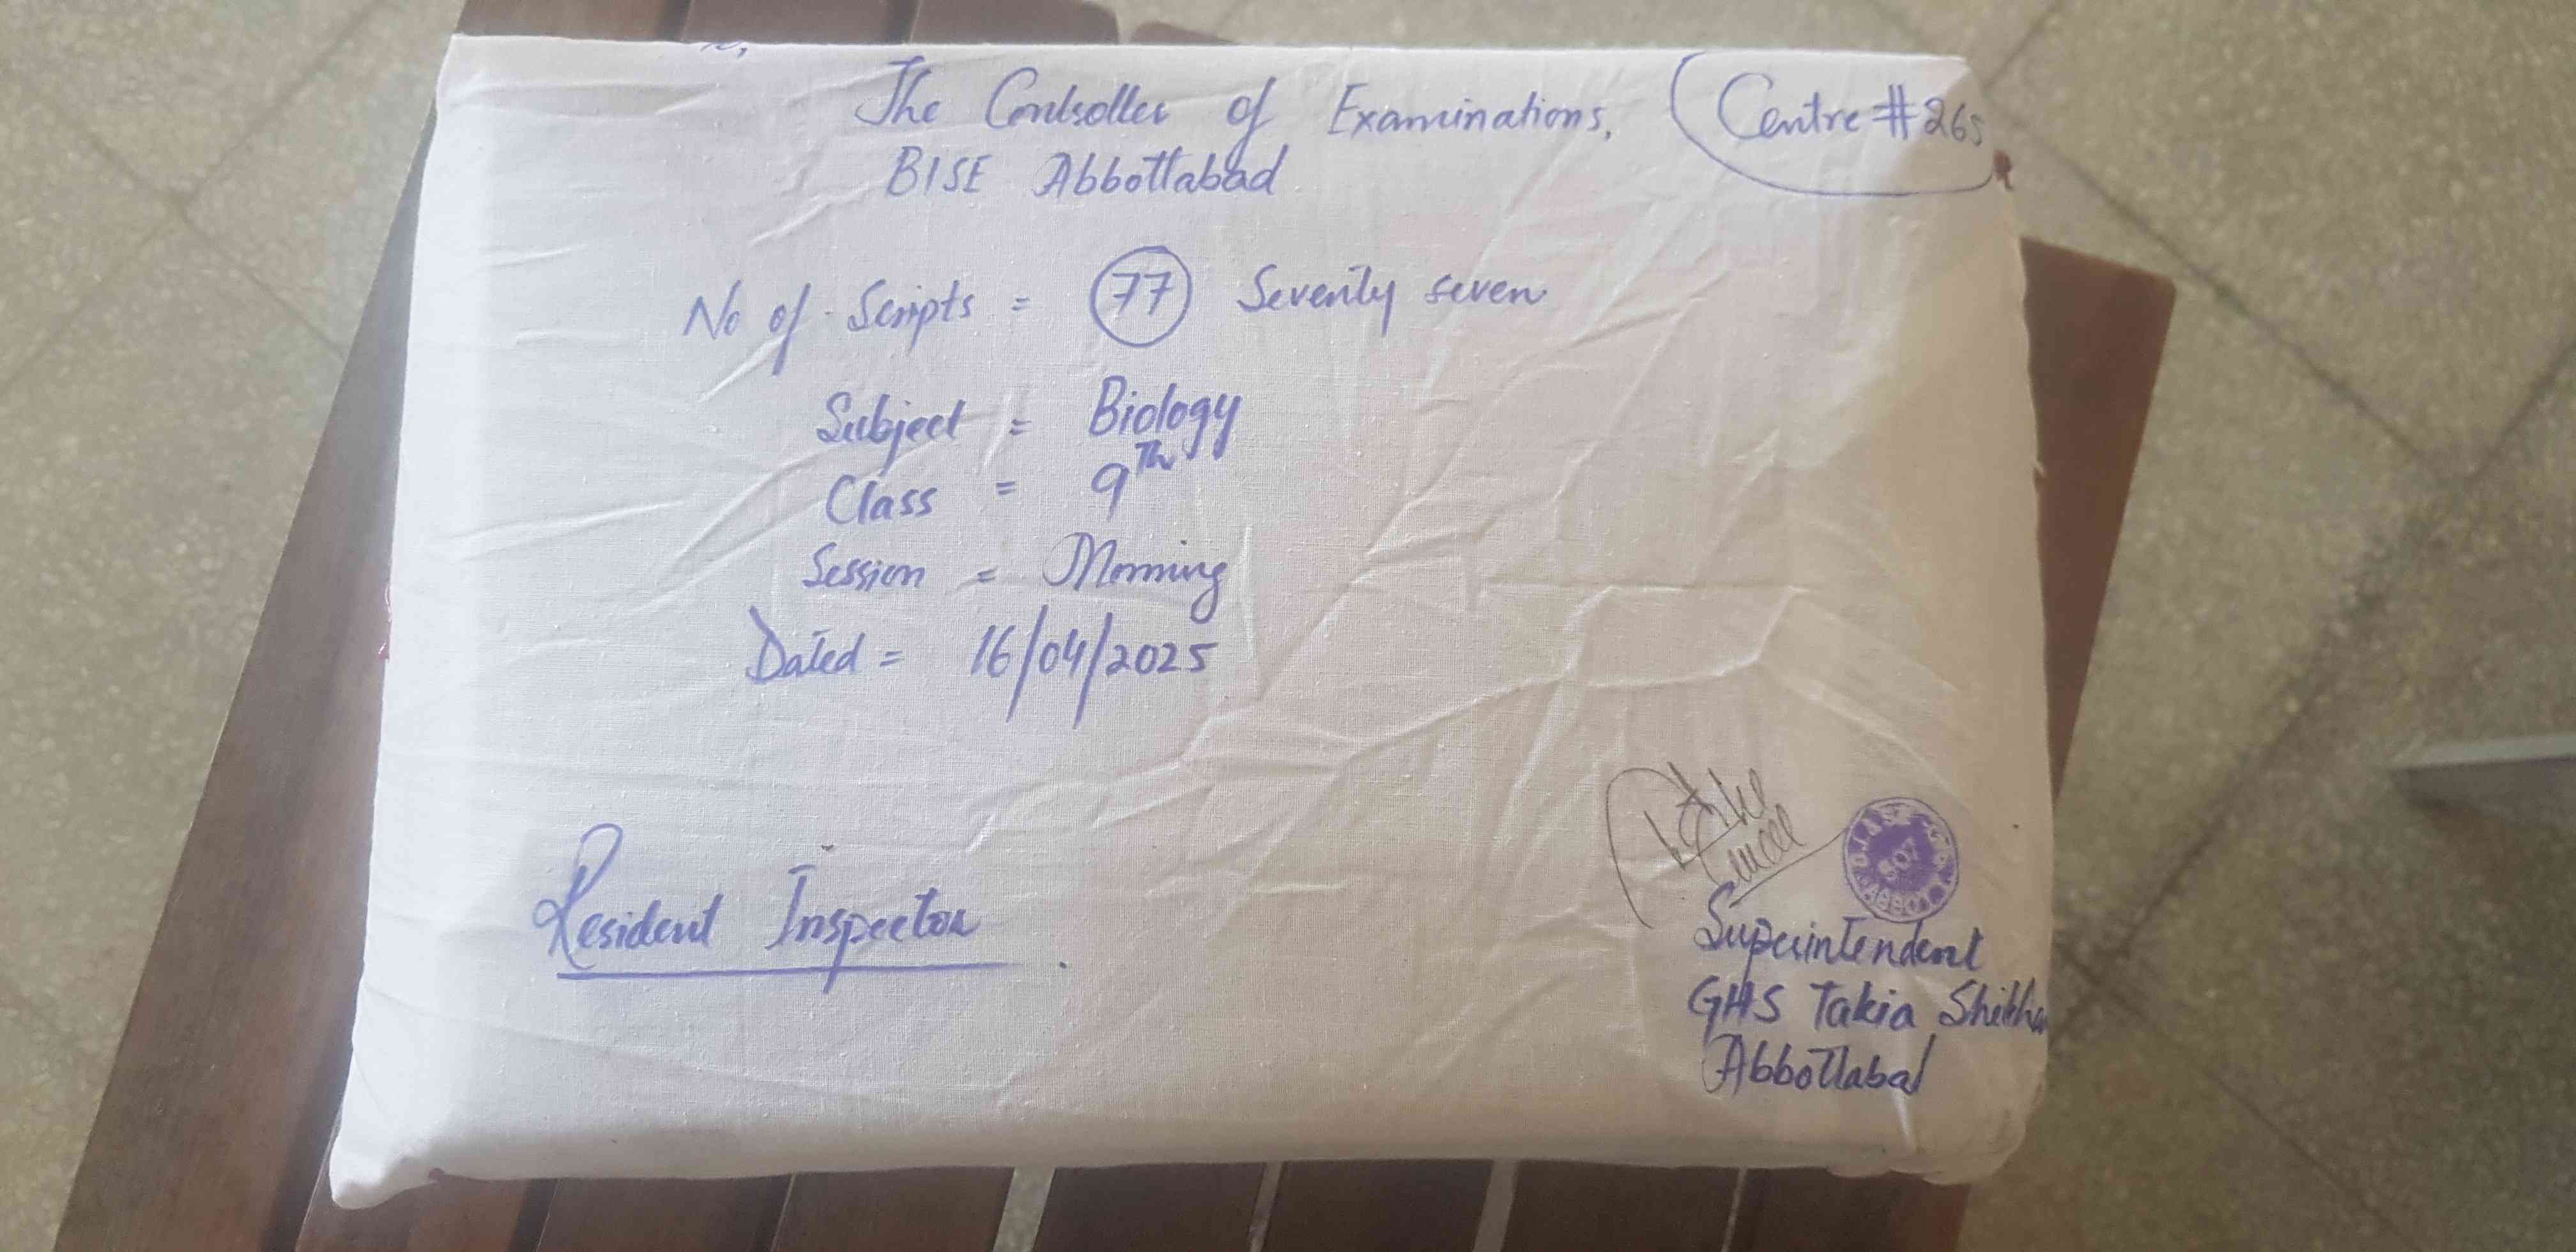 The Controller of Examinations, Centre #265
BISE Abbottabad
No of Scripts = 77 Seventy seven
Subject = Biology
Class = 9Th
Session = Morning
Dated = 16/04/2025
Resident Inspector
Superintendent
GHS Takia Sheikha
Abbottabad